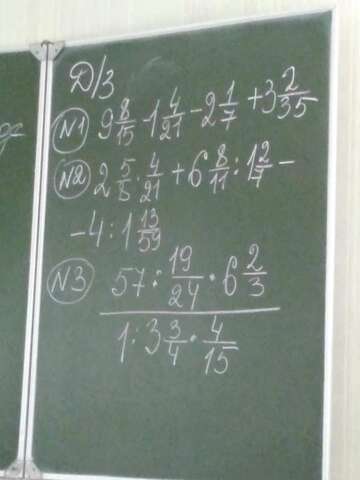 Д/З
№1 9 8/15 - 1 4/21 - 2 1/7 + 3 2/35
№2 2 5/5 · 4/21 + 6 8/11 : 1 2/7 -
- 4 : 1 13/59
№3 57 : 19/24 · 6 2/3
1 : 3 3/4 · 4/15